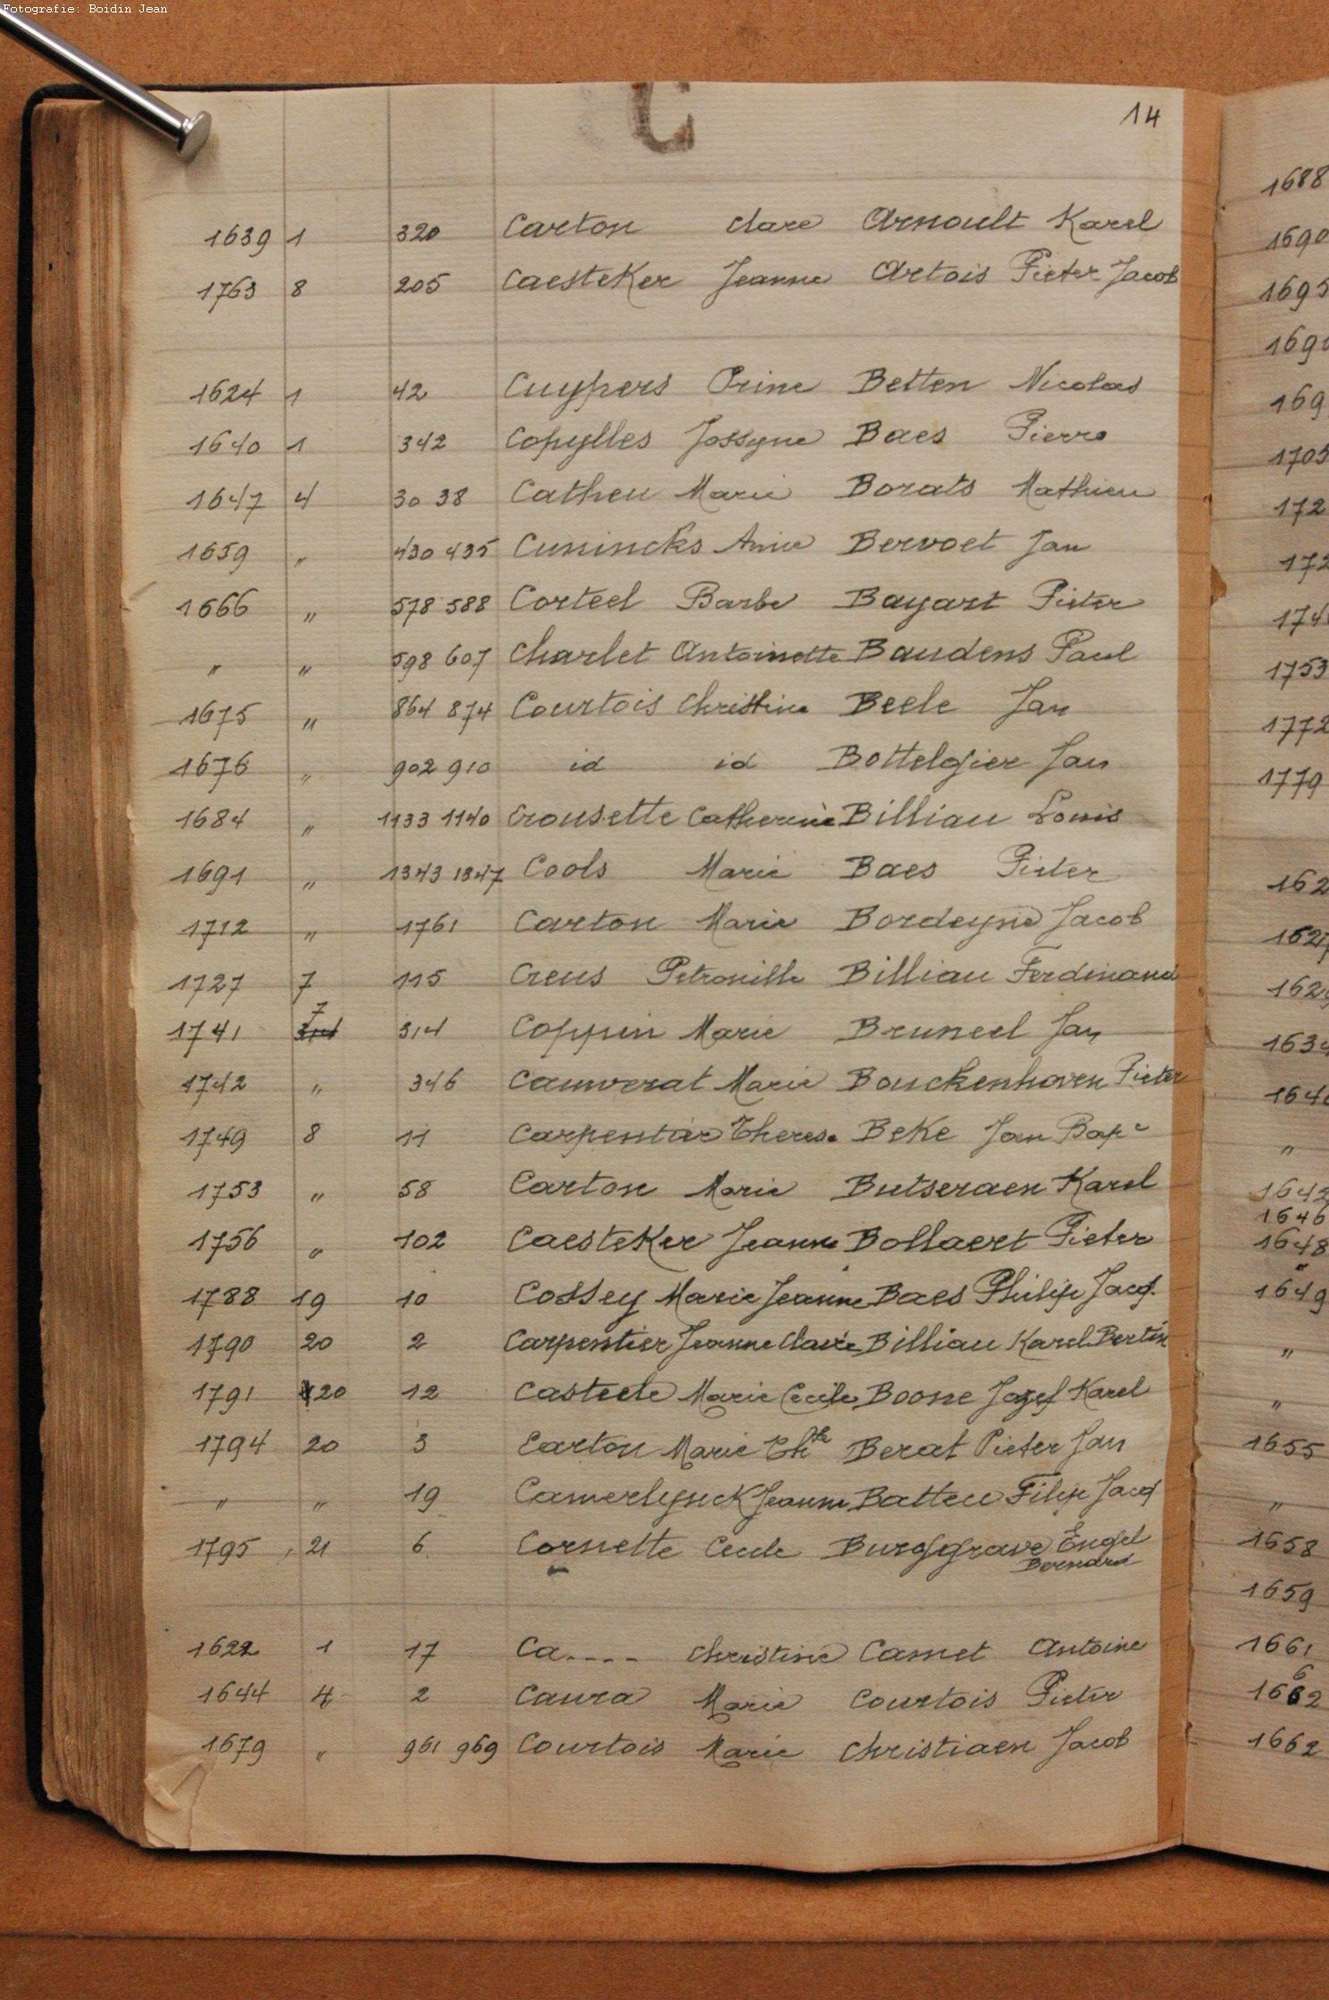 Fotografie: Boidin Jean
C
14
1639 1 320 Carton Clare Arnoult Karel
1763 8 205 Caesteker Jeanne Artois Pieter Jacob
1624 1 42 Cuypers Prine Betten Nicolas
1640 1 342 Copylles Jossyne Baes Pierre
1647 4 30 38 Catheu Marie Borats Mathieu
1659 " 430 435 Cunincks Anne Bervoet Jan
1666 " 578 588 Corteel Barbe Bayart Pieter
" " 598 607 Charlet Antoinette Baudens Paul
1675 " 864 874 Courtois Christine Beele Jan
1676 " 902 910 id id Bottelgier Jan
1684 " 1133 1140 Crousette Catherine Billiau Louis
1691 " 1343 1347 Cools Marie Baes Pieter
1712 " 1761 Carton Marie Bordeyne Jacob
1727 7 115 Creus Petronille Billiau Ferdinand
1741 7 314 Coppin Marie Bruneel Jan
1742 " 346 Cauwerat Marie Bouckenhoven Pieter
1749 8 11 Carpentar Therese Beke Jan Bapᵉ
1753 " 58 Carton Marie Butseraen Karel
1756 " 102 Caesteker Jeanne Bollaert Pieter
1788 19 10 Cossey Marie Jeanne Baes Philip Jacq.
1790 20 2 Carpentier Jeanne Claire Billiau Karel Bertin
1791 20 12 Casteele Marie Cecile Boone Jozef Karel
1794 20 3 Carton Marie Thᵉ Berat Pieter Jan
" " 19 Camerlynck Jeanne Batteu Filip Jacq
1795 21 6 Cornette Cecile Burggrave Engel
Bernard
1622 1 17 Ca.... Christine Camet Antoine
1644 4 2 Caura Marie Courtois Pieter
1679 " 961 969 Courtois Marie Christiaen Jacob
1688
1690
1695
1703
1753
1772
1779
"
1642
1646
1648
"
1649
"
"
1655
"
1658
1659
1661
1662
1662